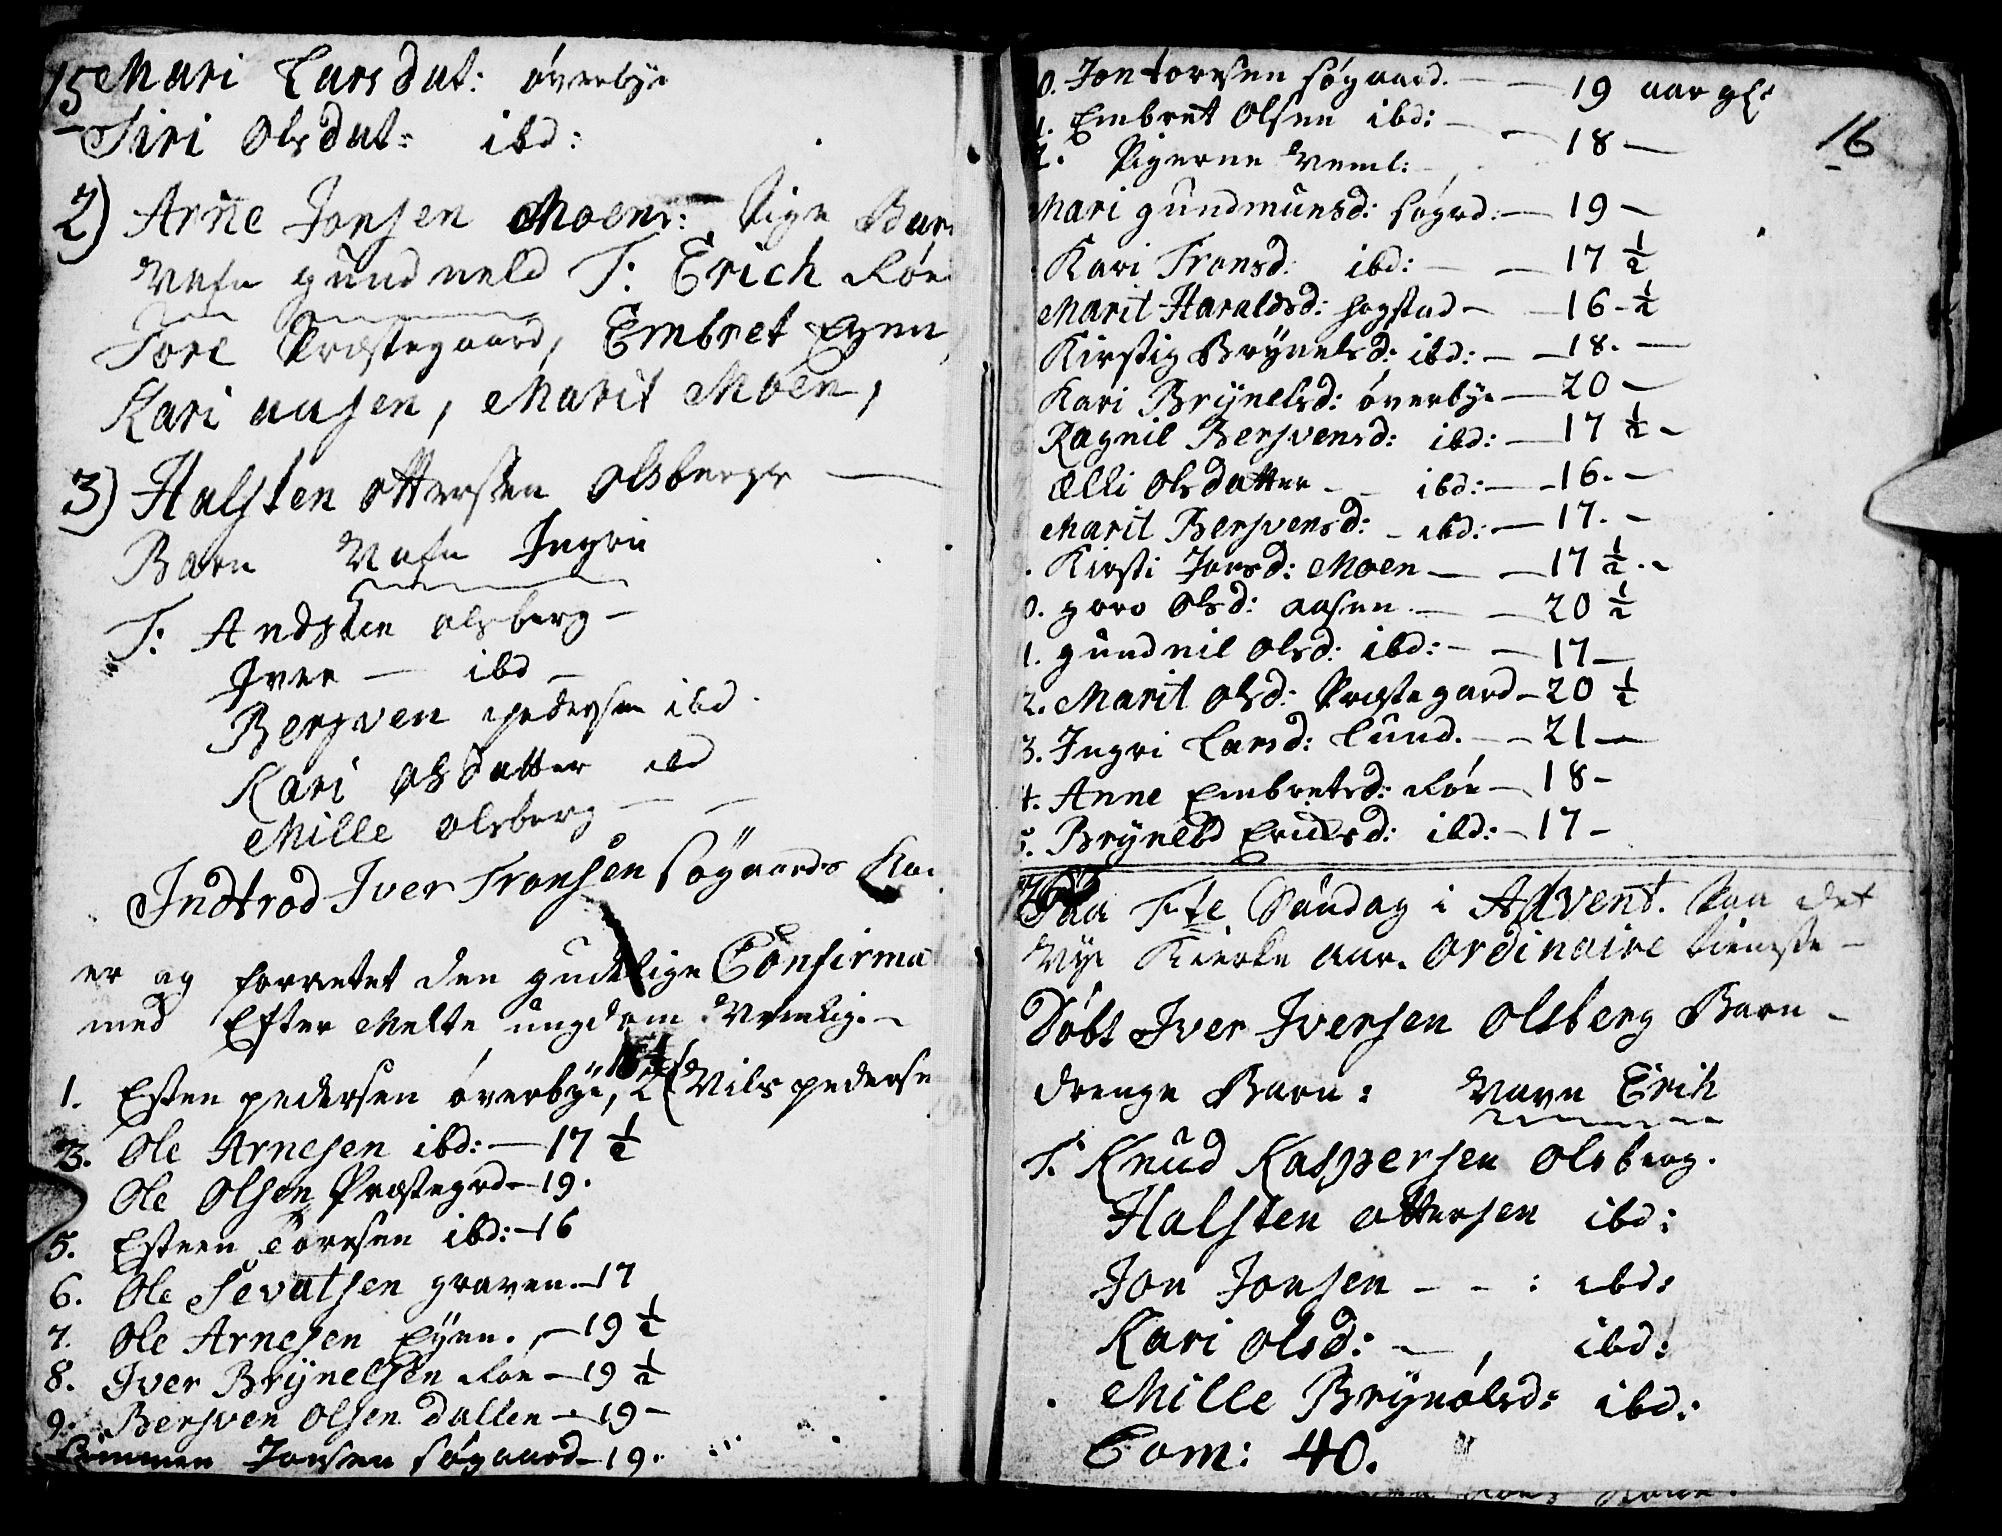 15
Mari Larsdat: överbye
Siri Olsdat: ibd:
2) Arne Jonsen Moens: Pige Barn
Nafn gundneld T: Erich Röe
Tore Præstegaard, Embret Eyen,
Kari aasen, Marit Moen,
3) Halsten Ottersen Olsbergs
Barn Nafn Ingri
T: Andsten olsberg -
Iver - ibd -
Bersven pedersen ibd.
Kari Olsdatter ibd
Mille olsberg
Indtrod Iver Tronsen Søgaards
er og forrettet den gudelige Confirma
med Efter Melte ungdom Nemlig. -
1. Esten pedersen överbye, 2 (Nils pederse
3. Ole Arnesen ibd: - 17 ½
Ole Olsen Præstegrd - 19.
5. Esteen Toresen ibd: - 16
6. Ole Sevatsen graven - 17
7. Ole Arnesen Eyen. - 19 ½
8. Iver Brynelsen Röe - 19 ½
9. Bersven Olsen Dallen - 19 -
Simmen Jonsen søgaard - 19.
16
0. Jon toresen søgaard. - - 19 aar gl:
1. Embret Olsen ibd: - - 18 -
2. Pigerne Neml:
Mari gundmunsd: søgrd: - 19 -
Kari Tronsd: ibd: - - 17 ½
Marit Haraldsd: hogstad - - 16 - ½
Kirstig Brynelsd: ibd: - - 18. -
Kari Brynelsd: överbye - 20 -
Ragnil Bersvensd: ibd: - 17 ½ -
Elli Olsdatter - - ibd: - - 16. -
Marit Bersvensd: - ibd: - 17. -
Kirsti Jonsd: Moen - - 17 ½. -
0. goro Olsd: aasen. - - 20 ½
1. gundnil Olsd: ibd: - - 17 -
2. Marit Olsd: Præstegard - 20 ½
3. Ingri Larsd: Lund. - - 21 -
4. Anne Embretsd: Röe - 18 -
5. Bryneld Erichsd: ibd: - 17 -
Paa F-te Söndag i Advent. Paa det
Nye Kierke aar. Ordinaire tieneste -
Döbt Iver Iversen Olsberg Barn -
drenge Barn: Navn Erik
T. Knud Kaspersen Olsberg.
Halsten Ottersen ibd:
Jon Jonsen - - : ibd:
Kari Olsd: - , ibd:
Mille Brynölsd: ibd:
Com: 40.